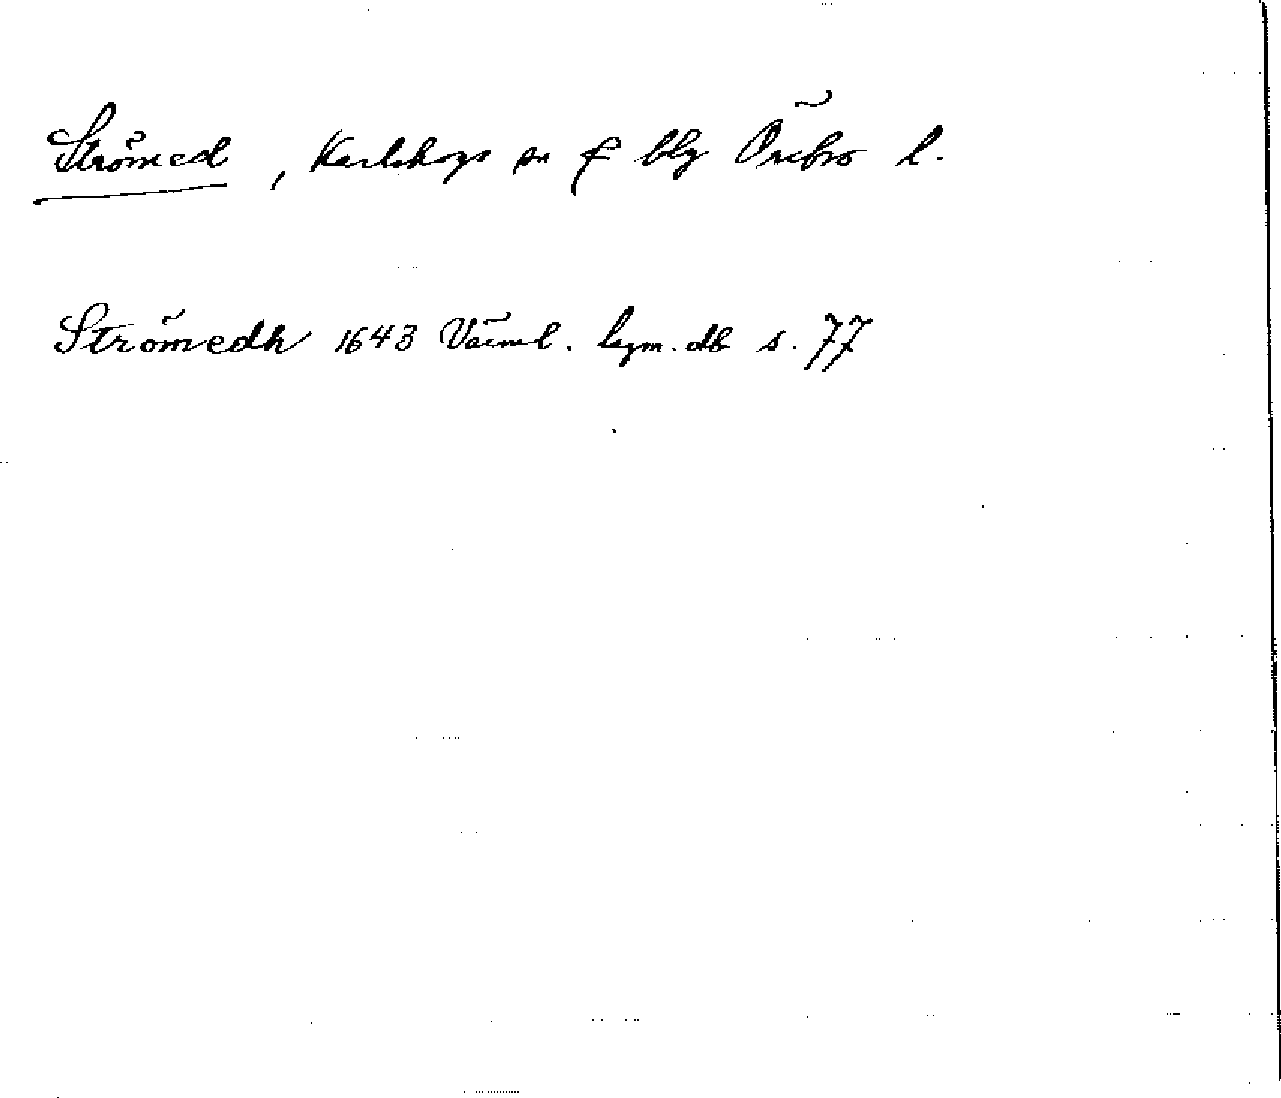 Strömed, Karlskoga sn f blg Örebro l.
Strömedh 1643 Värml. lagm. db s. 77